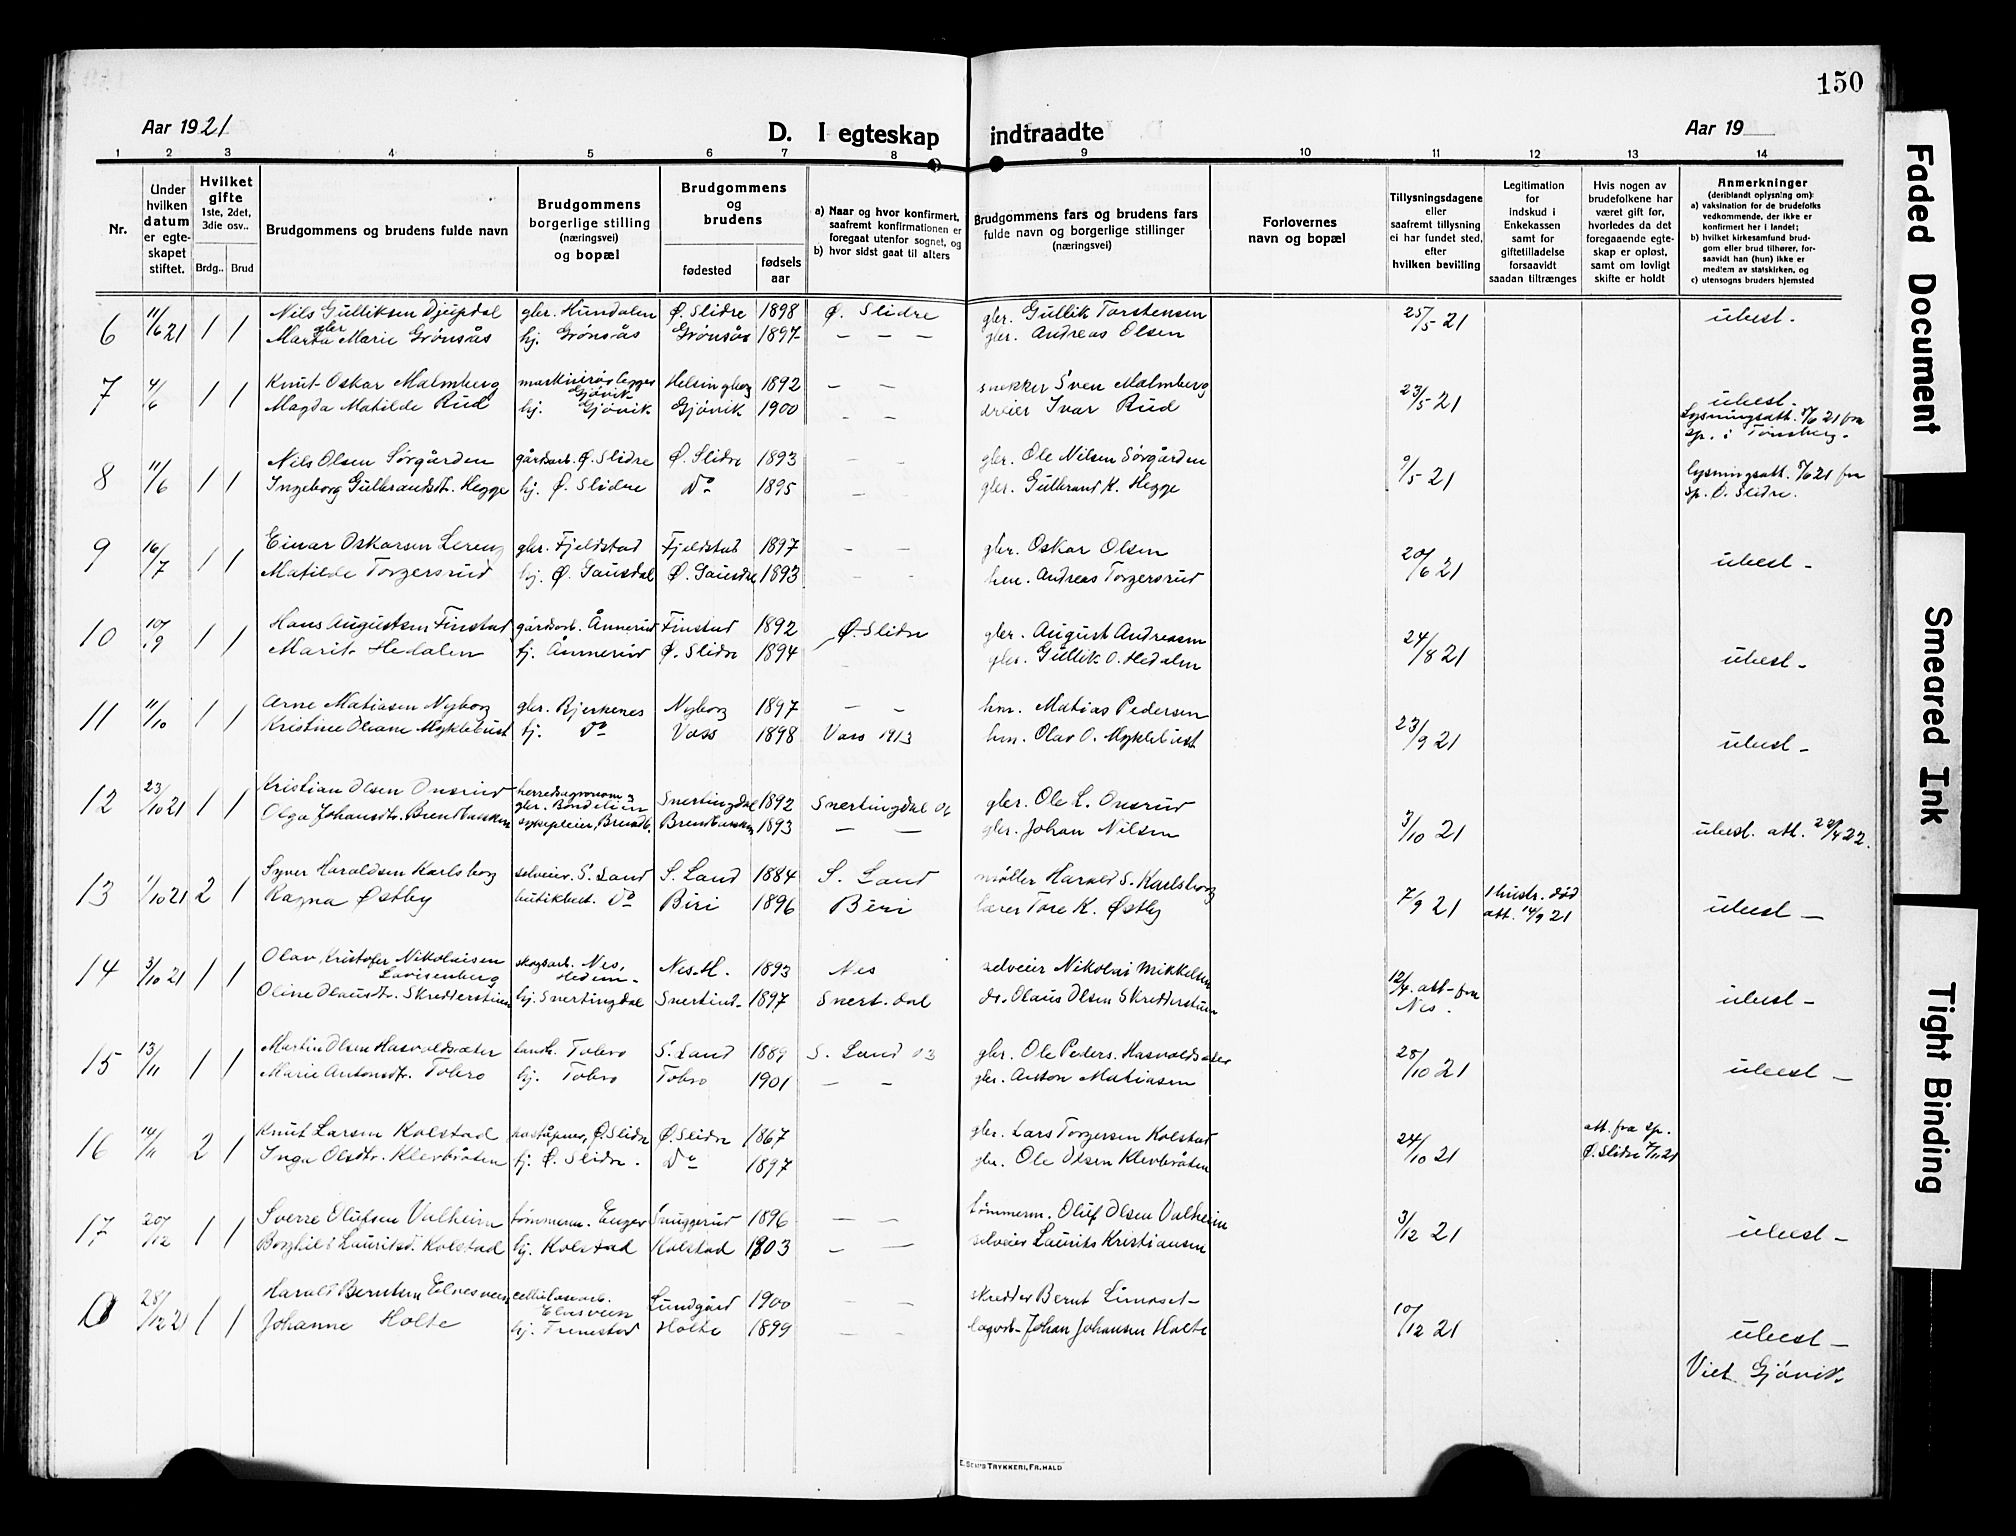 150
Aar 1921
D. I egteskap indtraadte
Aar 19
1 2 3 4 5 6 7 8 9 10 11 12 13 14
Nr.
Under hvilken datum er egteskapet stiftet.
Hvilket gifte 1ste, 2det, 3die osv..
Brdg.. Brud
Brudgommens og brudens fulde navn
Brudgommens borgerlige stilling (næringsvei) og bopæl
Brudgommens og brudens
fødested
fødsels aar
a) Naar og hvor konfirmert, saafremt konfirmationen er foregaat utenfor sognet, og
b) hvor sidst gaat til alters
Brudgommens fars og brudens fars fulde navn og borgerlige stillinger (næringsvei)
Forlovernes navn og bopæl
Tillysningsdagene eller saafremt tillysning ei har fundet sted, efter hvilken bevilling
Legitimation for indskud i Enkekassen samt for giftetilladelse forsaavidt saadan tiltrænges
Hvis nogen av brudefolkene har været gift før, hvorledes da det foregaaende egteskap er opløst, samt om lovligt skifte er holdt
Anmerkninger (deriblandt oplysning om):
a) vaksination for de brudefolks vedkommende, der ikke er konfirmert her i landet;
b) hvilket kirkesamfund brudgom eller brud tilhører, forsaavidt han (hun) ikke er medlem av statskirken, og
c) utensogns bruders hjemsted
6 11/6 21 1 1 Nils Gulliksen Djupdal gbr. Hundalen Ø. Slidre 1898 Ø. Slidre gbr. Gullik Torstensen 25/5 21 ubest.
Marta Marie Grønsås hj. Grønsås Grønsås 1897 — — — gbr. Andreas Olsen
7 4/6 1 1 Knut Oskar Malmberg Gjøvik Helsingborg 1892 — — snekker Sven Malmberg 23/5 21 ubest.
Magda Matilde Rud hj. Gjøvik Gjøvik 1900 — — dreier Ivar Rud Lysningsatt. 5/6 21 fra
sp. i Tønsberg.
8 11/6 1 1 Nils Olsen Sørgården gårdsarb. Ø. Slidre Ø. Slidre 1893 — — gbr. Ole Nilsen Sørgården 9/5 21 lysningsatt. 9/6 21 fra
Ingeborg Gulbrandsdt. Hegge hj. Ø. Slidre Do 1895 — — gbr. Gulbrand K. Hegge sp. Ø. Slidre.
9 16/7 1 1 Einar Oskarsen Løreng gbr. Fjeldstad Fjeldstad 1897 — — gbr. Oskar Olsen 20/6 21 ubest —
Matilde Torgersrud hj. Ø. Gausdal Ø. Gausdal 1893 - - hm. Andreas Torgersrud
10 10/9 1 1 Hans Augustsen Finstad gårdsarb. Ånnerud Finstad 1892 Ø. Slidre gbr. August Andreassen 24/8 21 ubest —
Marit Hedalen tj. Ånnerud Ø. Slidre 1894 gbr. Gullik O. Hedalen
11 11/10 1 1 Arne Matiasen Nyborg gbr. Bjerkenes Nyborg 1897 — — hm. Matias Pedersen 23/9 21 ubest —
Kristine Oliane Myklebust tj. Do Voss 1898 Voss 1913 hm. Olav O. Myklebust
12 23/10 21 1 1 Kristian Olsen Onsrud herredsagronom og gbr. Bondelien Snertingdal 1892 Snertingdal 06 gbr. Ole L. Onsrud 3/10 21 ubest. att. 28/4 22.
Olga Johansdt. Brenbakken sykepleier, Brendb. Brenbakken 1893 — — gbr. Johan Nilsen
13 1/10 21 2 1 Syver Haraldsen Karlsborg selveier. S. Land S. Land 1884 S. Land møller Harald S. Karlsborg 7/9 21 1 hustr. død
Ragna Østby butikbest. Do Biri 1896 Biri lærer Tore K. Østby att. 14/9 21 ubest —
14 3/10 21 1 1 Olav Kristofer Nikolaisen skogsarb. Nes, Nes. H. 1893 Nes selveier Nikolai Mikkelsen 12/4. att. fra
Lovisenberg Hedem- Nes.
Oline Olausdt. Skredderstuen hj. Snertingdal Snertind- 1897 Snert. dal do. Olaus Olsen Skredderstuen ubest —
15 13/11 1 1 Martin Olsen Hasvoldsæter landh. Tobro S. Land 1889 S. Land 03 gbr. Ole Peders. Hasvoldsæter 28/10 21 ubest —
Marie Antonsdt. Tobro hj. Tobro Tobro 1901 — — gbr. Anton Matiasen
16 14/11 2 1 Knut Larsen Kolstad poståpner, Ø. Slidre Ø. Slidre 1867 gbr. Lars Torgersen Kolstad 24/10 21 att. fra sp.
Inga Olsdtr. Klevbråten tj. Ø. Slidre. Do 1897 gbr. Ole Olsen Klevbråten Ø. Slidre 7/11 21
17 20/12 1 1 Sverre Olufsen Valheim tømmerm. Enger Snuggerud 1896 — — tømmerm. Oluf Olsen Valheim 3/12 21 ubest —
Borghild Lauritsd. Kolstad hj. Kolstad Kolstad 1903 — — selveier Laurits Kristiansen
28/12 21 1 1 Harald Berntsen Elvesveen cellulosearb. Elvesveen Lundgård 1900 — — skredder Bernt Limoset 10/12 21 ubest —
Johanne Holte hj. Tunestad Holte 1899 — — Johan Johansen Holte
Viet Gjøvik
E. Sem's Trykkeri, Fr.hald
Faded Document
Smeared Ink
Tight Binding